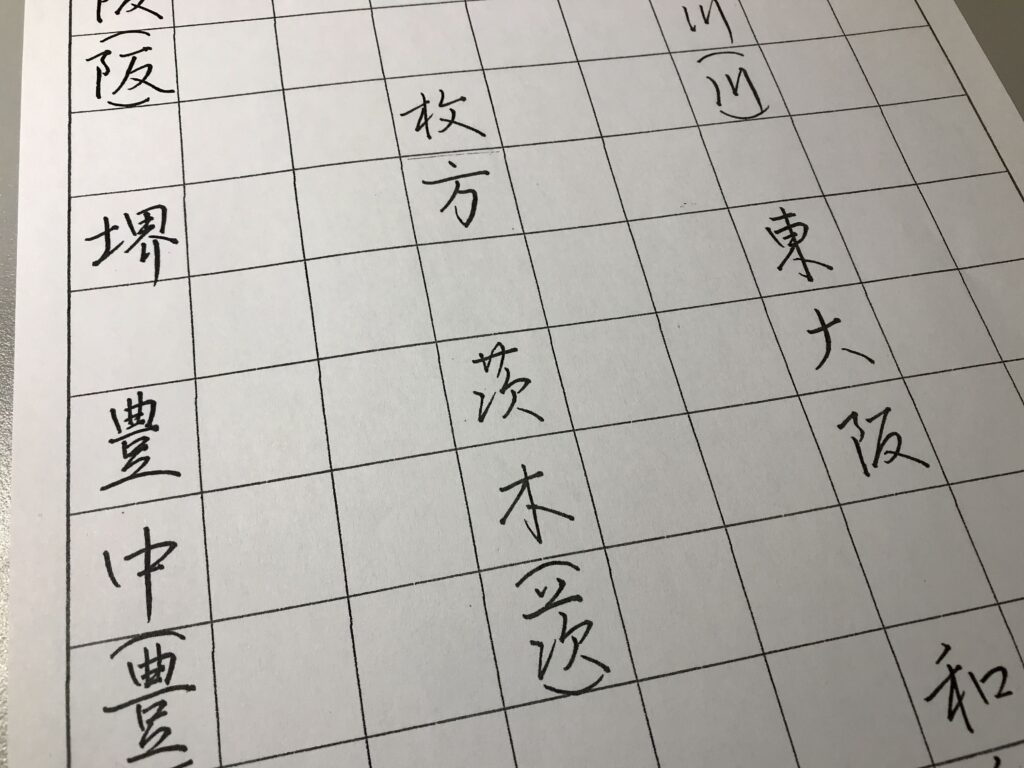 川(川)
東大阪
和
枚方
茨木(茨)
阪(阪)
堺
豊中(豊